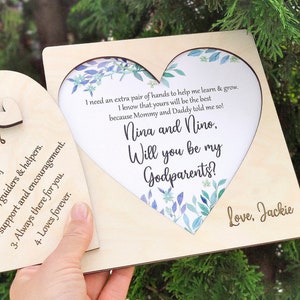 guiders & helpers.
support and encouragement.
3. Always there for you.
4. Loves forever.
I need an extra pair of hands to help me learn & grow.
I know that yours will be the best
because Mommy and Daddy told me so!
Nina and Nino,
Will you be my
Godparents?
Love, Jackie